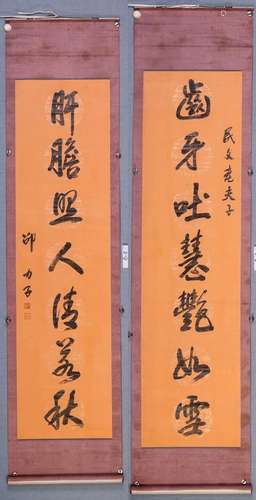 齒牙吐慧艷如雪
民文老夫子
肝膽照人清若秋
邵力子